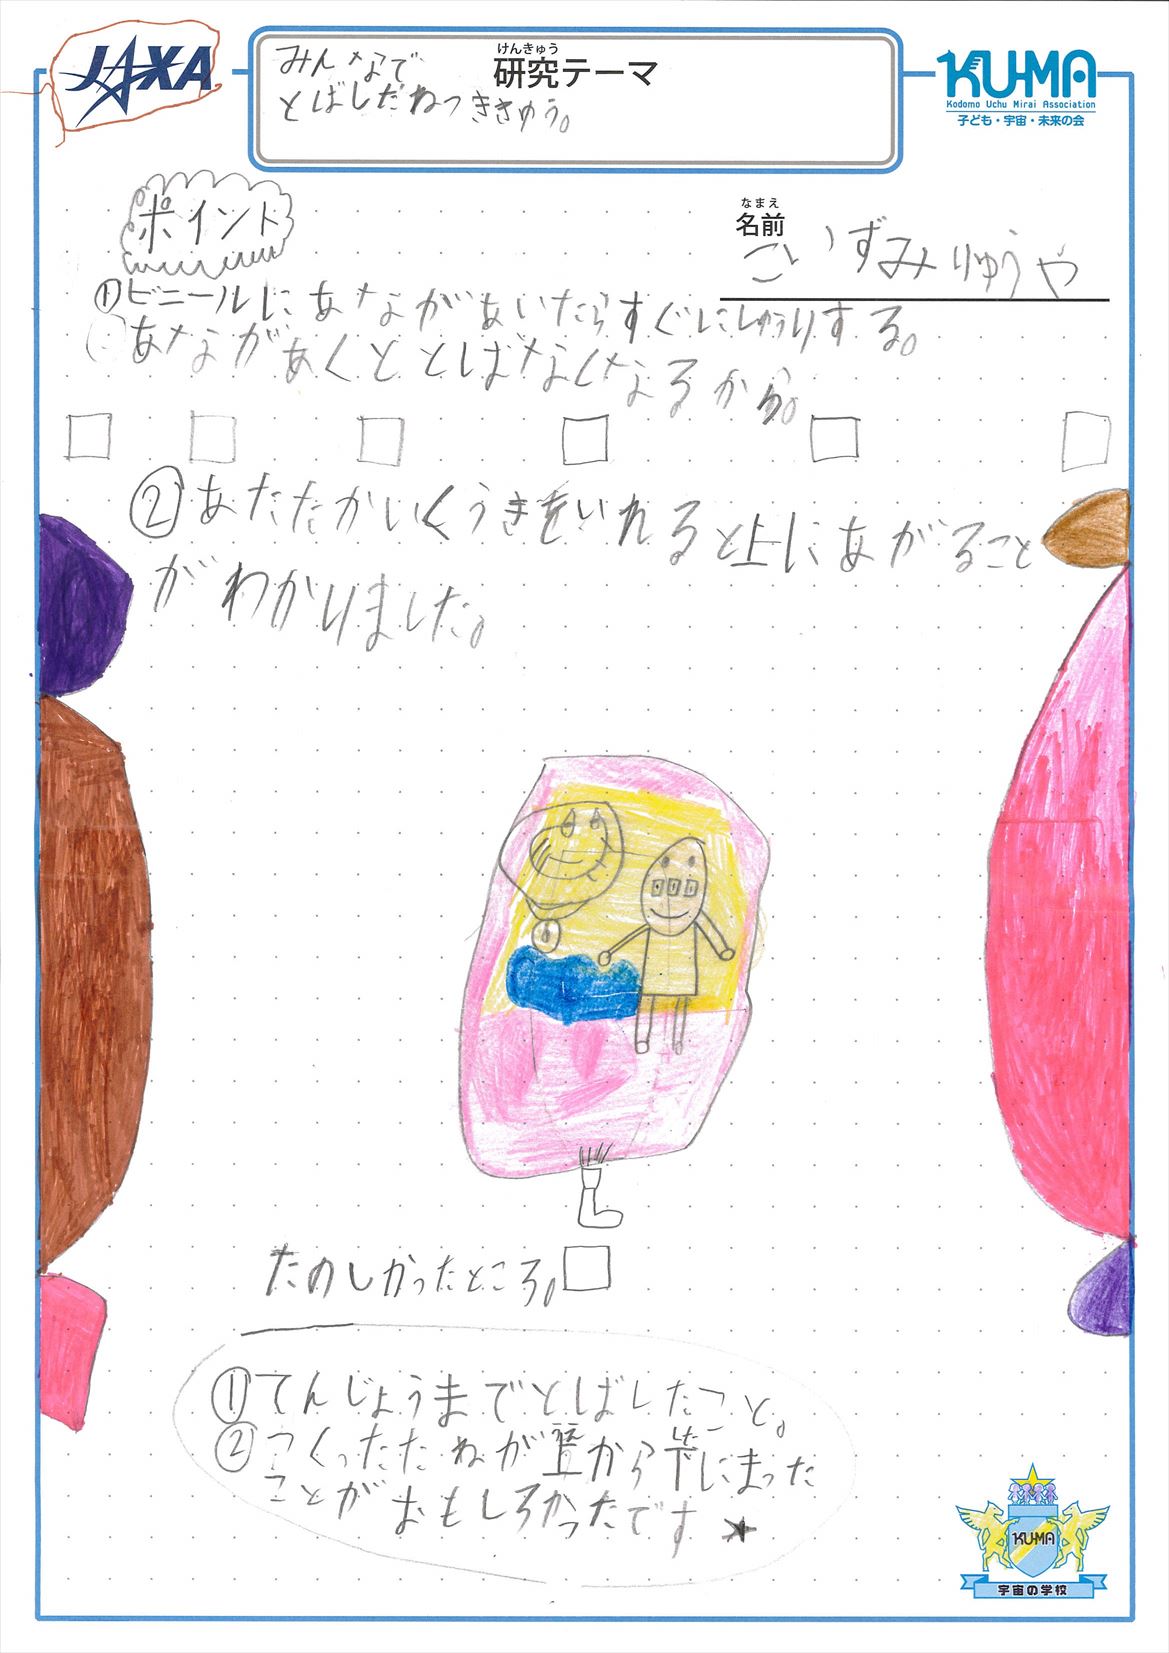 JAXA
けんきゅう
研究テーマ
みんなで
とばしたねつききゅう。
KU-MA
Kodomo Uchu Mirai Association
子ども・宇宙・未来の会
ポイント
なまえ
名前
こいずみりゅうや
①ビニールにあながあいたらすぐにしゅうりする。
あながあくととばなくなるから。
②あたたかいくうきをいれると上にあがること
がわかりました。
たのしかったところ。
①てんじょうまでとばしたこと。
②つくったたねが上から下にまった
うえ
した
ことがおもしろかったです★
KU-MA
宇宙の学校